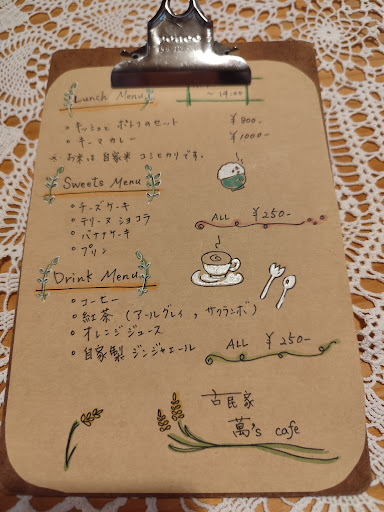 Lunch Menu
～14:00
・キッシュと ポトフのセット ¥800-
・キーマ カレー ¥1000-
※ お米は 自家米 コシヒカリです。
Sweets Menu
・チーズケーキ
・テリーヌ ショコラ
・バナナケーキ
・プリン
ALL ¥250-
Drink Menu
・コーヒー
・紅茶 (アールグレイ , サクランボ)
・オレンジジュース
・自家製 ジンジャエール
ALL ¥250-
古民家
萬's cafe